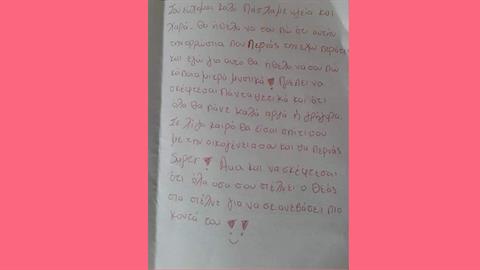 Σου εύχομαι Καλό Πάσχα με υγεία και
χαρά. Θα ήθελα να σου πω ότι αυτήν
την αρρώστια που Περνάς την έχω περάσει
και εγώ για αυτό θα ήθελα να σου πω
κάποια μικρά μυστικά! Πρέπει να
σκέφτεσαι Πάντα θετικά και ότι
όλα θα πάνε καλά αργά ή γρήγορα.
Σε λίγο καιρό θα είσαι σπίτι σου
με την οικογένεια σου και θα περνάς
super! Αμα και να σκέφτεσαι
ότι όλα οσα σου στέλνει ο Θεός
στα στέλνει για να σε ανεβάσει πιο
κοντά του!!